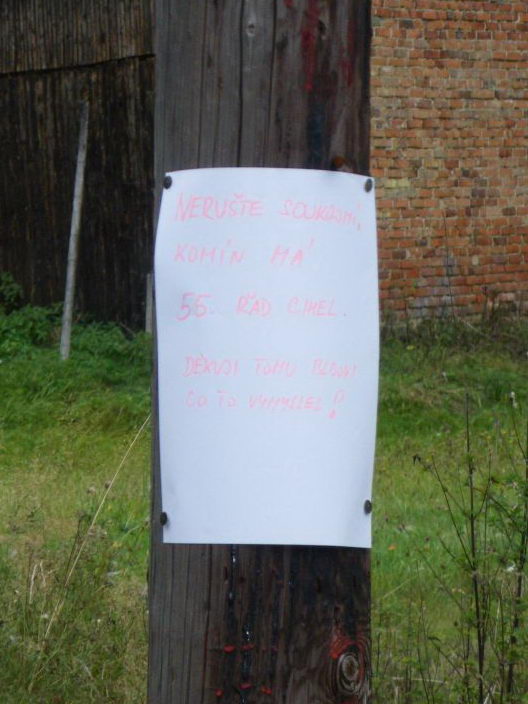 NERUŠTE SOUKROMÍ,
KOMÍN MÁ
55. ŘAD CIHEL.
DĚKUJI TOMU BLBOVI
CO TO VYMYSLEL!